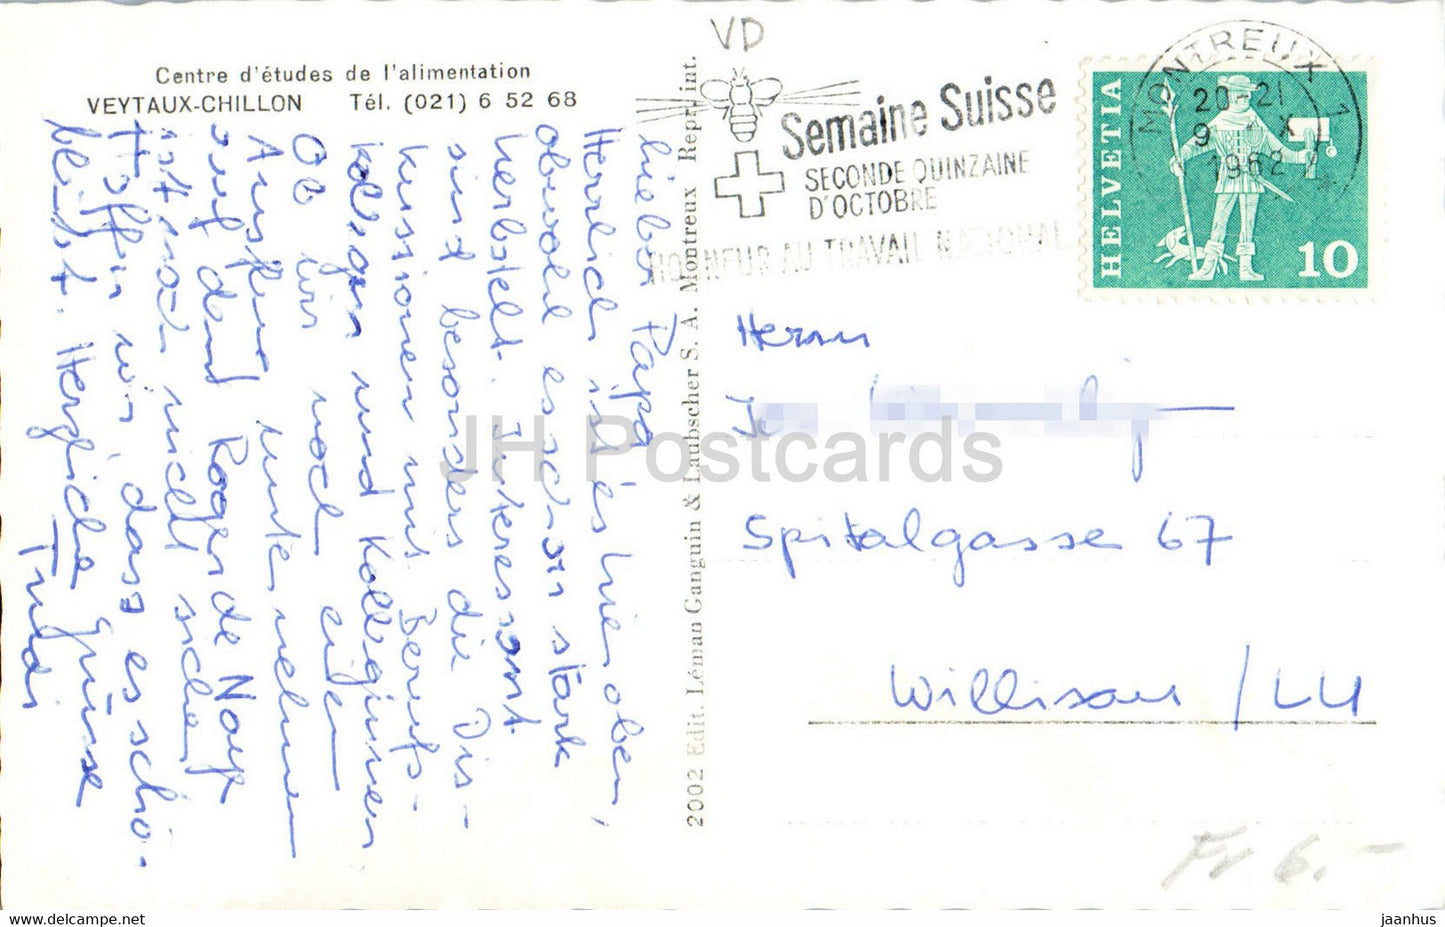 VD
Centre d'études de l'alimentation
VEYTAUX-CHILLON Tél. (021) 6 52 68
Semaine Suisse
SECONDE QUINZAINE
D'OCTOBRE
HONNEUR AU TRAVAIL NATIONAL
MONTREUX 1
20-21
9 X
1962
HELVETIA
10
Lieber Papa
Herrlich ist es hier oben,
obwohl es schon stark
herbstelt. Interessant
sind besonders die Dis-
kussionen mit Berufs-
kollegen und Kolleginnen
Ob wir noch einen
Ausflug unternehmen
auf den Rochers de Naye
ist noch nicht sicher
Hoffen wir, dass es schö-
bleibt. Herzliche Grüsse
Trudi
2002 Edit. Léman Ganguin & Laubscher S. A. Montreux Repr. int.
Herrn
Spitalgasse 67
Willisau / LU
Fr 6.-
JH Postcards
jaanhus
www.delcampe.net